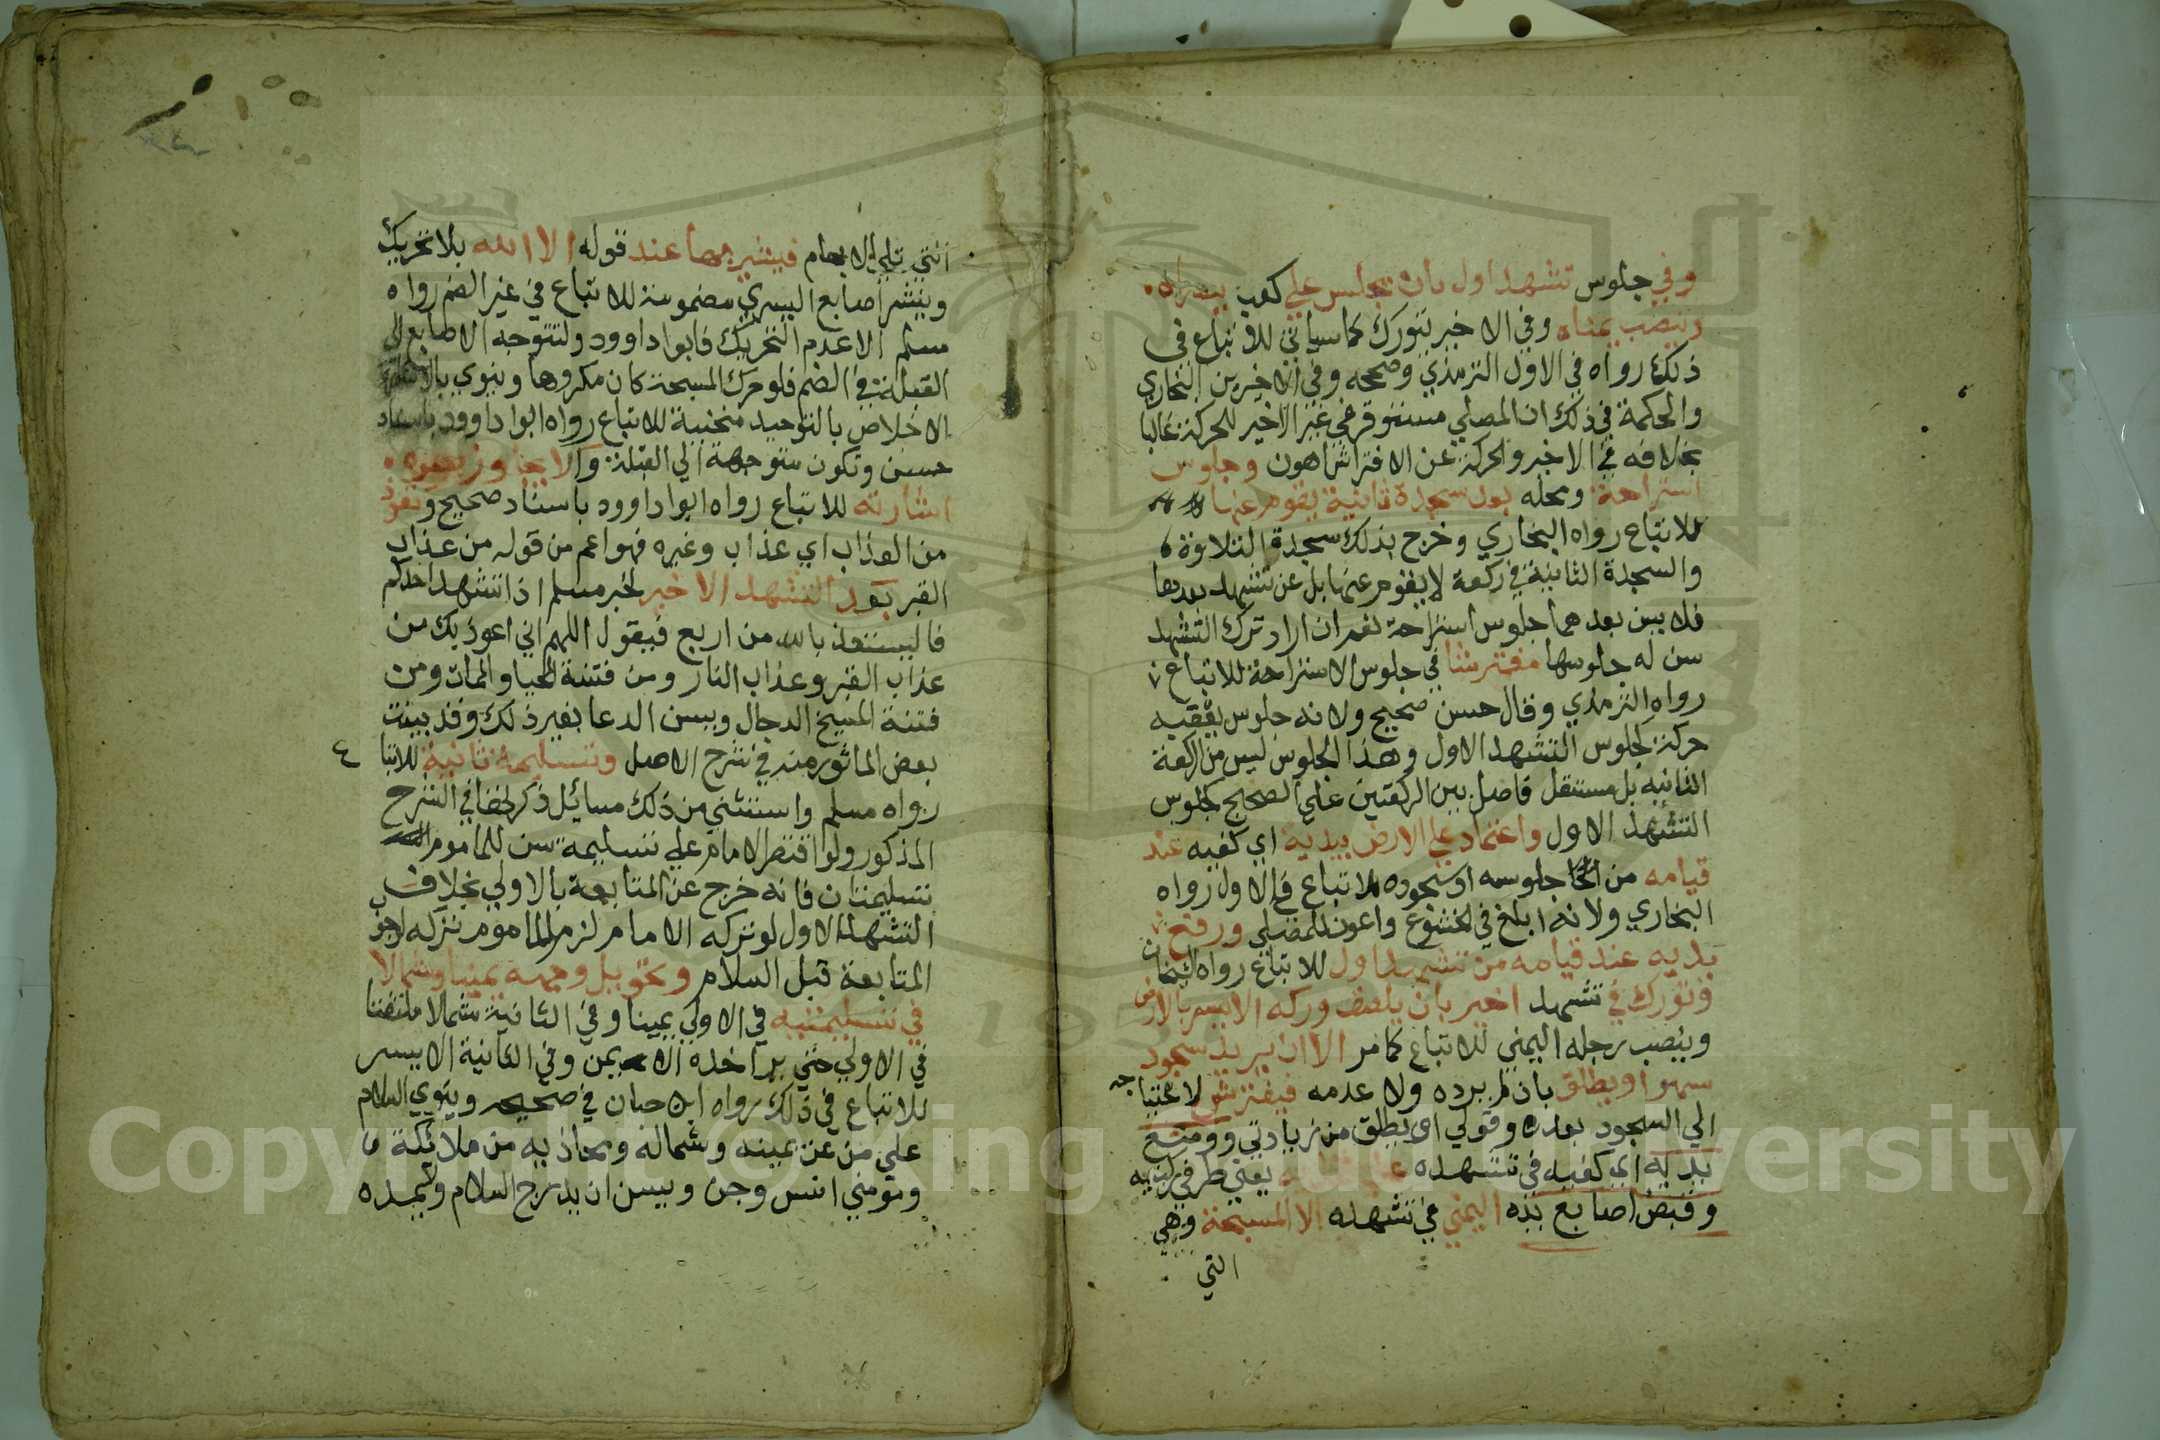 وفي جلوس تشهد اول بان يجلس علي كعب يسراه
وينصب يمناه وفي الاخير يتورك كما سياتي للاتباع في
ذلك رواه في الاول الترمذي وصححه وفي الاخيرين البخاري
والحكمة في ذلك ان المصلي مستوفز في غير الاخير للحركة غالبا
بخلافه في الاخير والحركة عن الافتراش اهون وجلوس
استراحة ومحله بعد سجدة ثانية يقوم عنها
للاتباع رواه البخاري وخرج بذلك سجدة التلاوة
والسجدة الثانية في ركعة لا يقوم عنها بل عن تشهد بعدها
فلا يسن بعدهما جلوس استراحة نعم ان اراد ترك التشهد
سن له جلوسها مفترشا في جلوس الاستراحة للاتباع
رواه الترمذي وقال حسن صحيح ولانه جلوس يعقبه
حركة كجلوس التشهد الاول وهذا الجلوس ليس من الركعة
الثانيه بل مستقل فاصل بين الركعتين علي الصحيح كجلوس
التشهد الاول واعتماد علي الارض بيديه اي كفيه عند
قيامه من جلوسه او سجوده للاتباع في الاول رواه
البخاري ولانه ابلغ في الخشوع واعون للمصلي ورفع
يديه عند قيامه من تشهد اول للاتباع رواه الشيخان
وتورك في تشهد اخير بان يلصق وركه الايسر بالارض
وينصب رجله اليمني للاتباع كما مر الا ان يريد سجود
سهو او يطلق بان لم يرده ولا عدمه فيفترش لاحتياجه
الي السجود بعده وقولي او يطلق من زيادتي ووضع
يديه اي كفيه في تشهده يعني طرفي ركبتيه
وقبض اصابع يده اليمني في تشهده الا المسبحة وهي
التي
التي تلي الابهام فيشير بها عند قوله الا الله بلا تحريك
وينشر اصابع اليسري مضمومة للاتباع في غير الضم رواه
مسلم الا عدم التحريك فابو داوود ولتتوجه الاصابع الي
القبلة في الضم فلو حرك المسبحة كان مكروها وينوي بالاشارة
الاخلاص بالتوحيد منحنية للاتباع رواه ابو داوود باسناد
حسن وتكون متوجهة الي القبلة ولا يجاوز بصره
اشارته للاتباع رواه ابو داوود باسناد صحيح وتعوذ
من العذاب اي عذاب وغيره فهو اعم من قوله من عذاب
القبر بعد التشهد الاخير لخبر مسلم اذا تشهد احدكم
فاليستعذ بالله من اربع فيقول اللهم اني اعوذ بك من
عذاب القبر وعذاب النار ومن فتنة المحيا والممات ومن
فتنة المسيح الدجال ويسن الدعا بغير ذلك وقد بينت
بعض الماثور منه في شرح الاصل وتسليمة ثانية للاتباع
رواه مسلم واستثني من ذلك مسائل ذكرتها في الشرح
المذكور ولو اقتصر الامام علي تسليمة سن للماموم
تسليمتان فانه خرج عن المتابعة بالاولي بخلاف
التشهد الاول لو تركه الامام لزم الماموم تركه لوجوب
المتابعة قبل السلام وتحويل وجهه يمينا وشمالا
في تسليمتيه في الاولي يمينا وفي الثانية شمالا ملتفتا
في الاولي حتي يري خده الايمن وفي الثانية الايسر
للاتباع في ذلك رواه ابن حبان في صحيحه وينوي السلام
علي من عن يمينه وشماله ومحاذيه من ملائكة
ومومني انس وجن ويسن ان يدرج السلام ولا يمده
Copyright © King Saud University